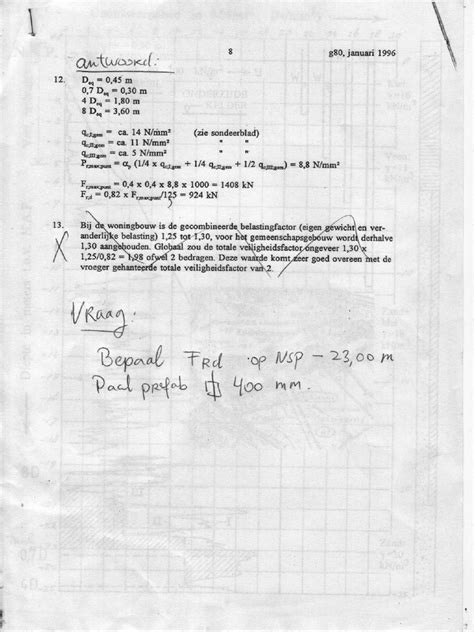 8
g80, januari 1996
antwoord:
12. D_eq = 0,45 m
0,7 D_eq = 0,30 m
4 D_eq = 1,80 m
8 D_eq = 3,60 m
q_c;I;gem = ca. 14 N/mm² (zie sondeerblad)
q_c;II;gem = ca. 11 N/mm² " "
q_c;III;gem = ca. 5 N/mm² " "
P_r;max;punt = α_p (1/4 x q_c;I;gem + 1/4 q_c;II;gem + 1/2 q_c;III;gem) = 8,8 N/mm²
F_r;max;punt = 0,4 x 0,4 x 8,8 x 1000 = 1408 kN
F_r;d = 0,82 x F_r;max;punt/125 = 924 kN
13. Bij de woningbouw is de gecombineerde belastingfactor (eigen gewicht en ver-
anderlijke belasting) 1,25 tot 1,30, voor het gemeenschapsgebouw wordt derhalve
1,30 aangehouden. Globaal zou de totale veiligheidsfactor ongeveer 1,30 x
1,25/0,82 = 1,98 ofwel 2 bedragen. Deze waarde komt zeer goed overeen met de
vroeger gehanteerde totale veiligheidsfactor van 2.
Vraag:
Bepaal FRd op NSP - 23,00 m
Paal prefab 400 mm.